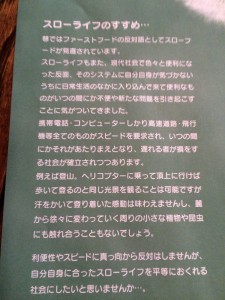 スローライフのすすめ…
巷ではファーストフードの反対語としてスローフー
ドが発露されています。
スローライフもまた、現代社会で色々と便利になっ
た反面、そのシステムに自分自身が気づかない
うちに日常生活のなかに入り込んで来て便利なも
のがいつの間にか不便や新たな問題を引き起こす
ことに気がついてきました。
携帯電話・コンピューターしかり高速道路・飛行
機等全てのものがスピードを要求され、いつの間
にかそれがあたりまえとなり、遅れる者が損をす
る社会が確立されつつあります。
例えば登山、ヘリコプターに乗って頂上に行けば
歩いて登るのと同じ光景を観ることは可能ですが
汗をかいて登り着いた感動は味わえませんし、麓
から徐々に変わっていく周りの小さな植物や昆虫
にも触れ合うこともないでしょう。
利便性やスピードに真っ向から反対はしませんが、
自分自身に合ったスローライフを平等におくれる
社会にしたいと思いませんか…。